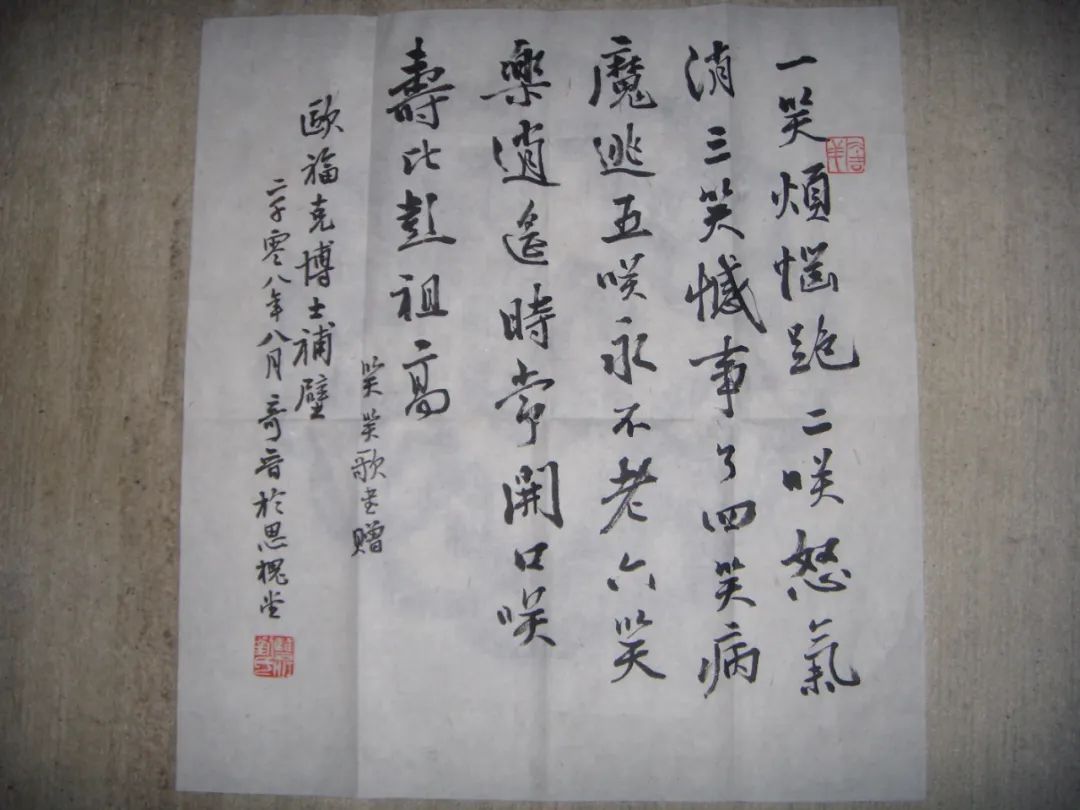 一笑煩惱跑二咲怒氣
消三笑憾事了四笑病
魔逃五咲永不老六笑
樂逍遙時常開口咲
壽比彭祖高
笑笑歌書贈
歐福克博士補壁
二千零八年八月奇音於思槐堂